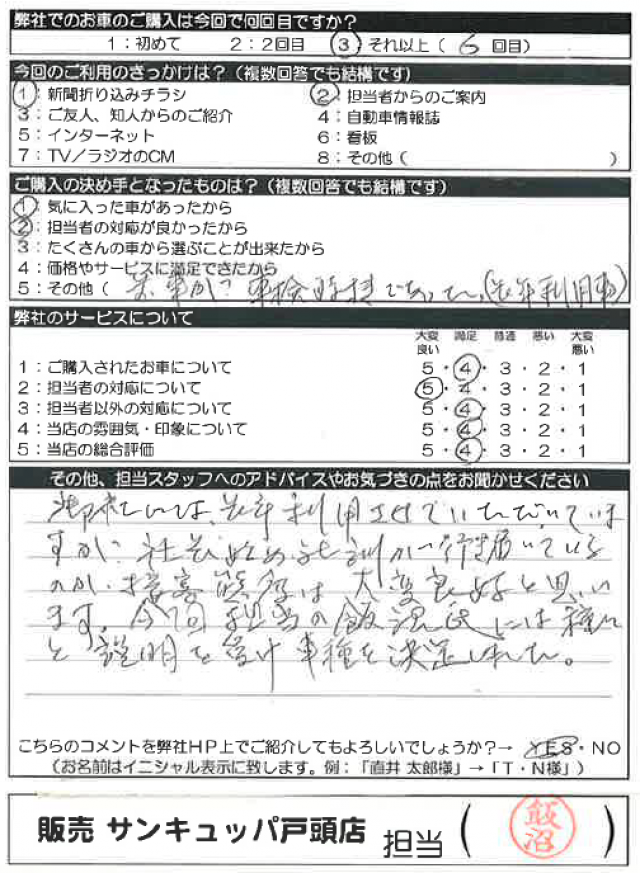 弊社でのお車のご購入は今回で何回目ですか?
1:初めて 2:2回目 3 それ以上( 6 回目)
今回のご利用のきっかけは?(複数回答でも結構です)
1:新聞折り込みチラシ 2:担当者からのご案内
3:ご友人、知人からのご紹介 4:自動車情報誌
5:インターネット 6:看板
7:TV/ラジオのCM 8:その他( )
ご購入の決め手となったものは?(複数回答でも結構です)
1:気に入った車があったから
2:担当者の対応が良かったから
3:たくさんの車から選ぶことが出来たから
4:価格やサービスに満足できたから
5:その他( 車が 車検時期であった。(長年利用車)
弊社のサービスについて
大変良い 満足 普通 悪い 大変悪い
1:ご購入されたお車について 5・4・3・2・1
2:担当者の対応について 5・4・3・2・1
3:担当者以外の対応について 5・4・3・2・1
4:当店の雰囲気・印象について 5・4・3・2・1
5:当店の総合評価 5・4・3・2・1
その他、担当スタッフへのアドバイスやお気づきの点をお聞かせください
御社には、長年利用させていただいていま
すが、社長始め社訓が行き届いている
のか、接客態度は大変良好と思い
ます。今回担当の飯沼氏には種々
と説明を受け車種を決定しました。
こちらのコメントを弊社HP上でご紹介してもよろしいでしょうか?→ YES・NO
(お名前はイニシャル表示に致します。例:「直井 太郎様」→「T・N様」)
販売 サンキュッパ戸頭店 担当( 飯沼 )